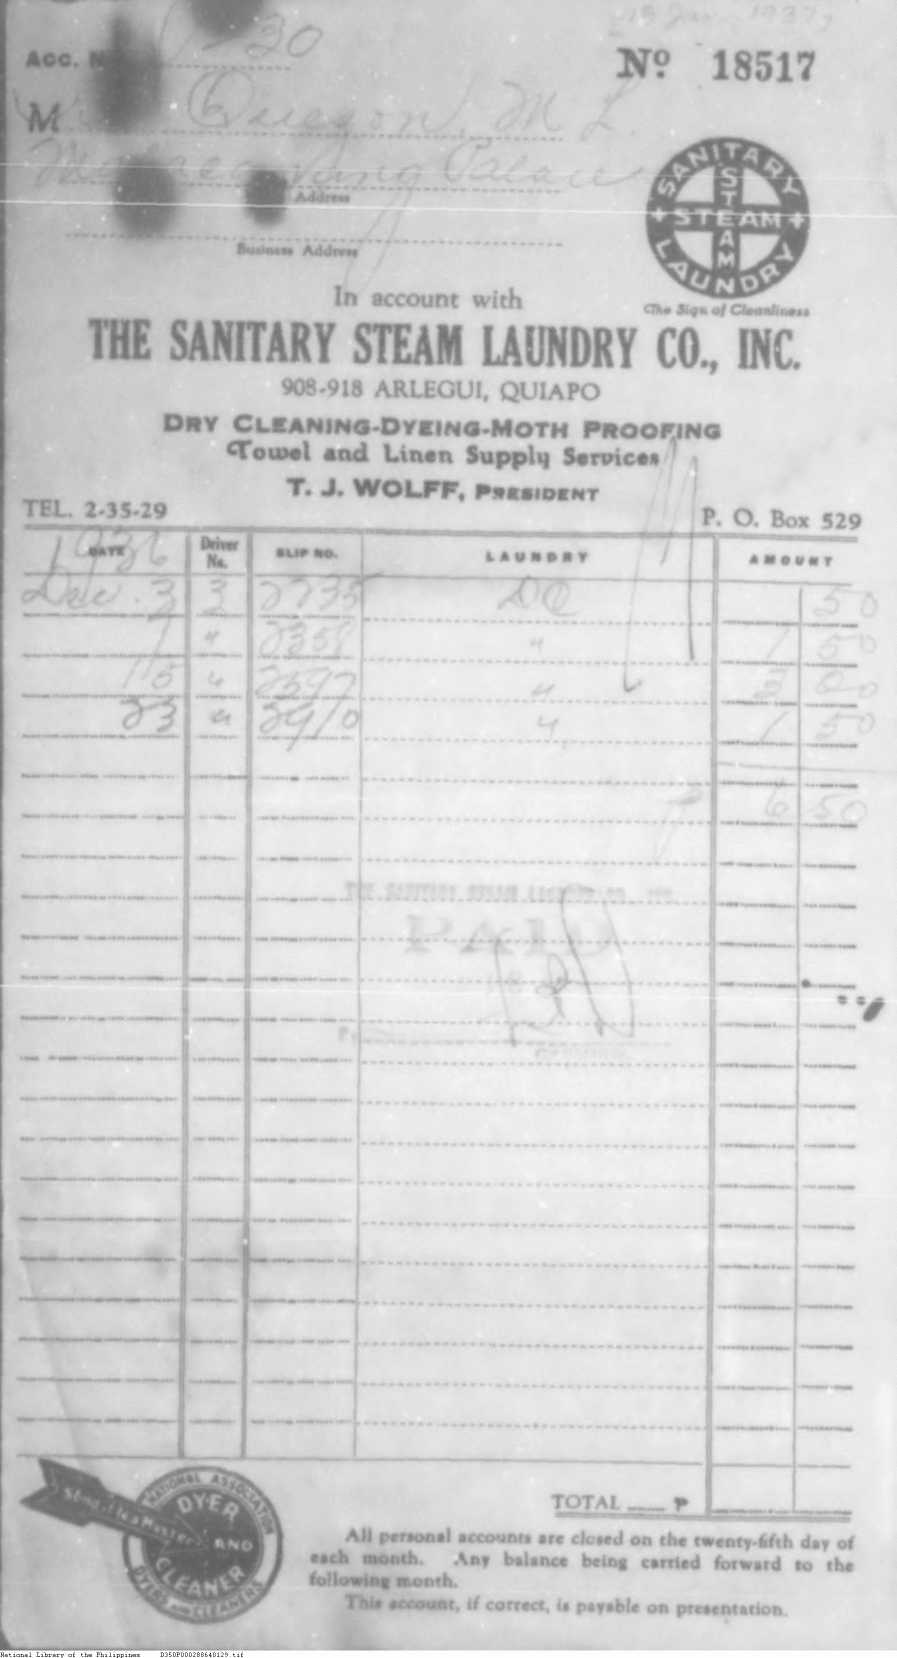 15 Jan. 1937
Acc. N -30
Nº 18517
M Quezon, M L.
Malacañang Palace
Address
Business Address
SANITARY
STEAM
STEAM
LAUNDRY
The Sign of Cleanliness
In account with
THE SANITARY STEAM LAUNDRY CO., INC.
908-918 ARLEGUI, QUIAPO
DRY CLEANING-DYEING-MOTH PROOFING
Towel and Linen Supply Services
T. J. WOLFF, PRESIDENT
TEL. 2-35-29 P. O. Box 529
1936
DATE Driver No. SLIP NO. LAUNDRY AMOUNT
Dec. 3 3 2235 DC 50
7 " 2358 " 1 50
15 " 2597 " 3 00
23 " 2910 " 1 50
P 6 50
THE SANITARY STEAM LAUNDRY CO., INC.
PAID
TOTAL ₱
NATIONAL ASSOCIATION
DYER
AND
CLEANER
DYERS AND CLEANERS
All personal accounts are closed on the twenty-fifth day of
each month. Any balance being carried forward to the
following month.
This account, if correct, is payable on presentation.
National Library of the Philippines D350P000288640129.tif